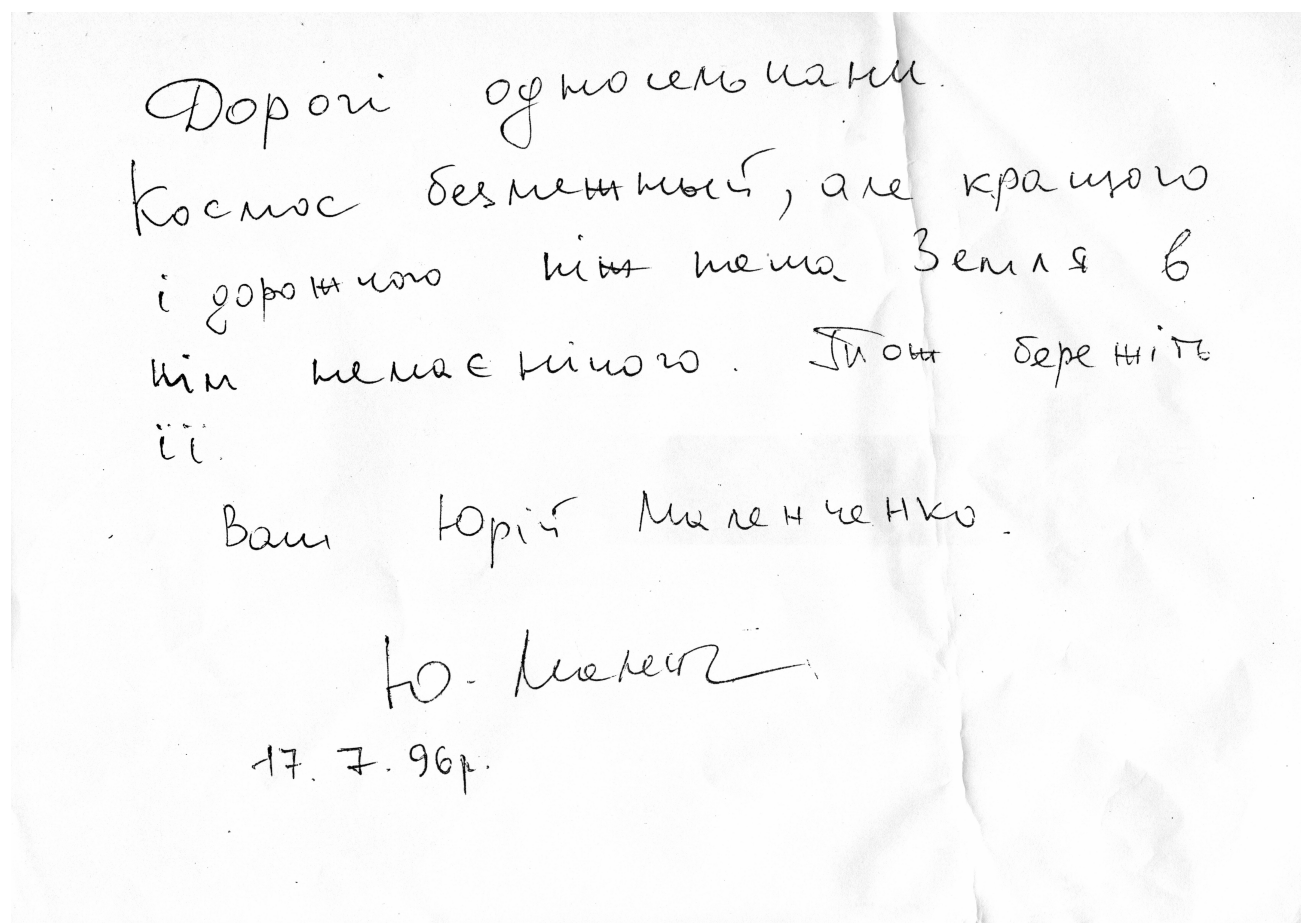 Дорогі односельчани.
Космос безмежный, але кращого
і дорожчого ніж наша Земля в
нім немає нічого. Тож бережіть
її.
Ваш Юрій Маленченко.
Ю. Мален
17. 7. 96р.